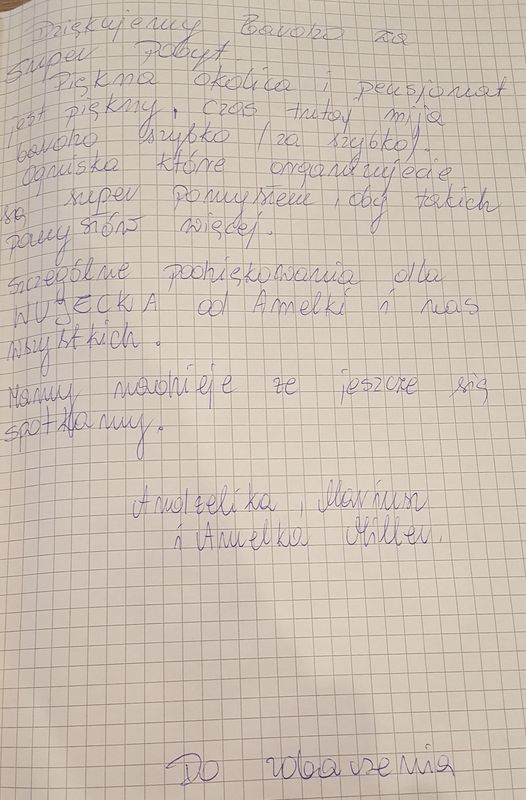 Dziękujemy Bardzo za
super pobyt
Piękna okolica i pensjonat
jest piękny, czas tutaj mija
bardzo szybko (za szybko).
Ogniska które organizujecie
są super pomysłem, oby takich
pomysłów więcej.
Szczególne podziękowania dla
WUJECKA od Amelki i nas
wszystkich.
Mamy nadzieje ze jeszcze się
spotkamy.
Andżelika, Mariusz
i Amelka Miller.
Do zobaczenia